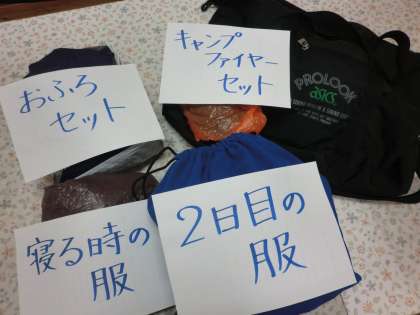 おふろ
セット
キャンプ
ファイヤー
セット
PROLOOK
asics
寝る時の
服
2日目の
服